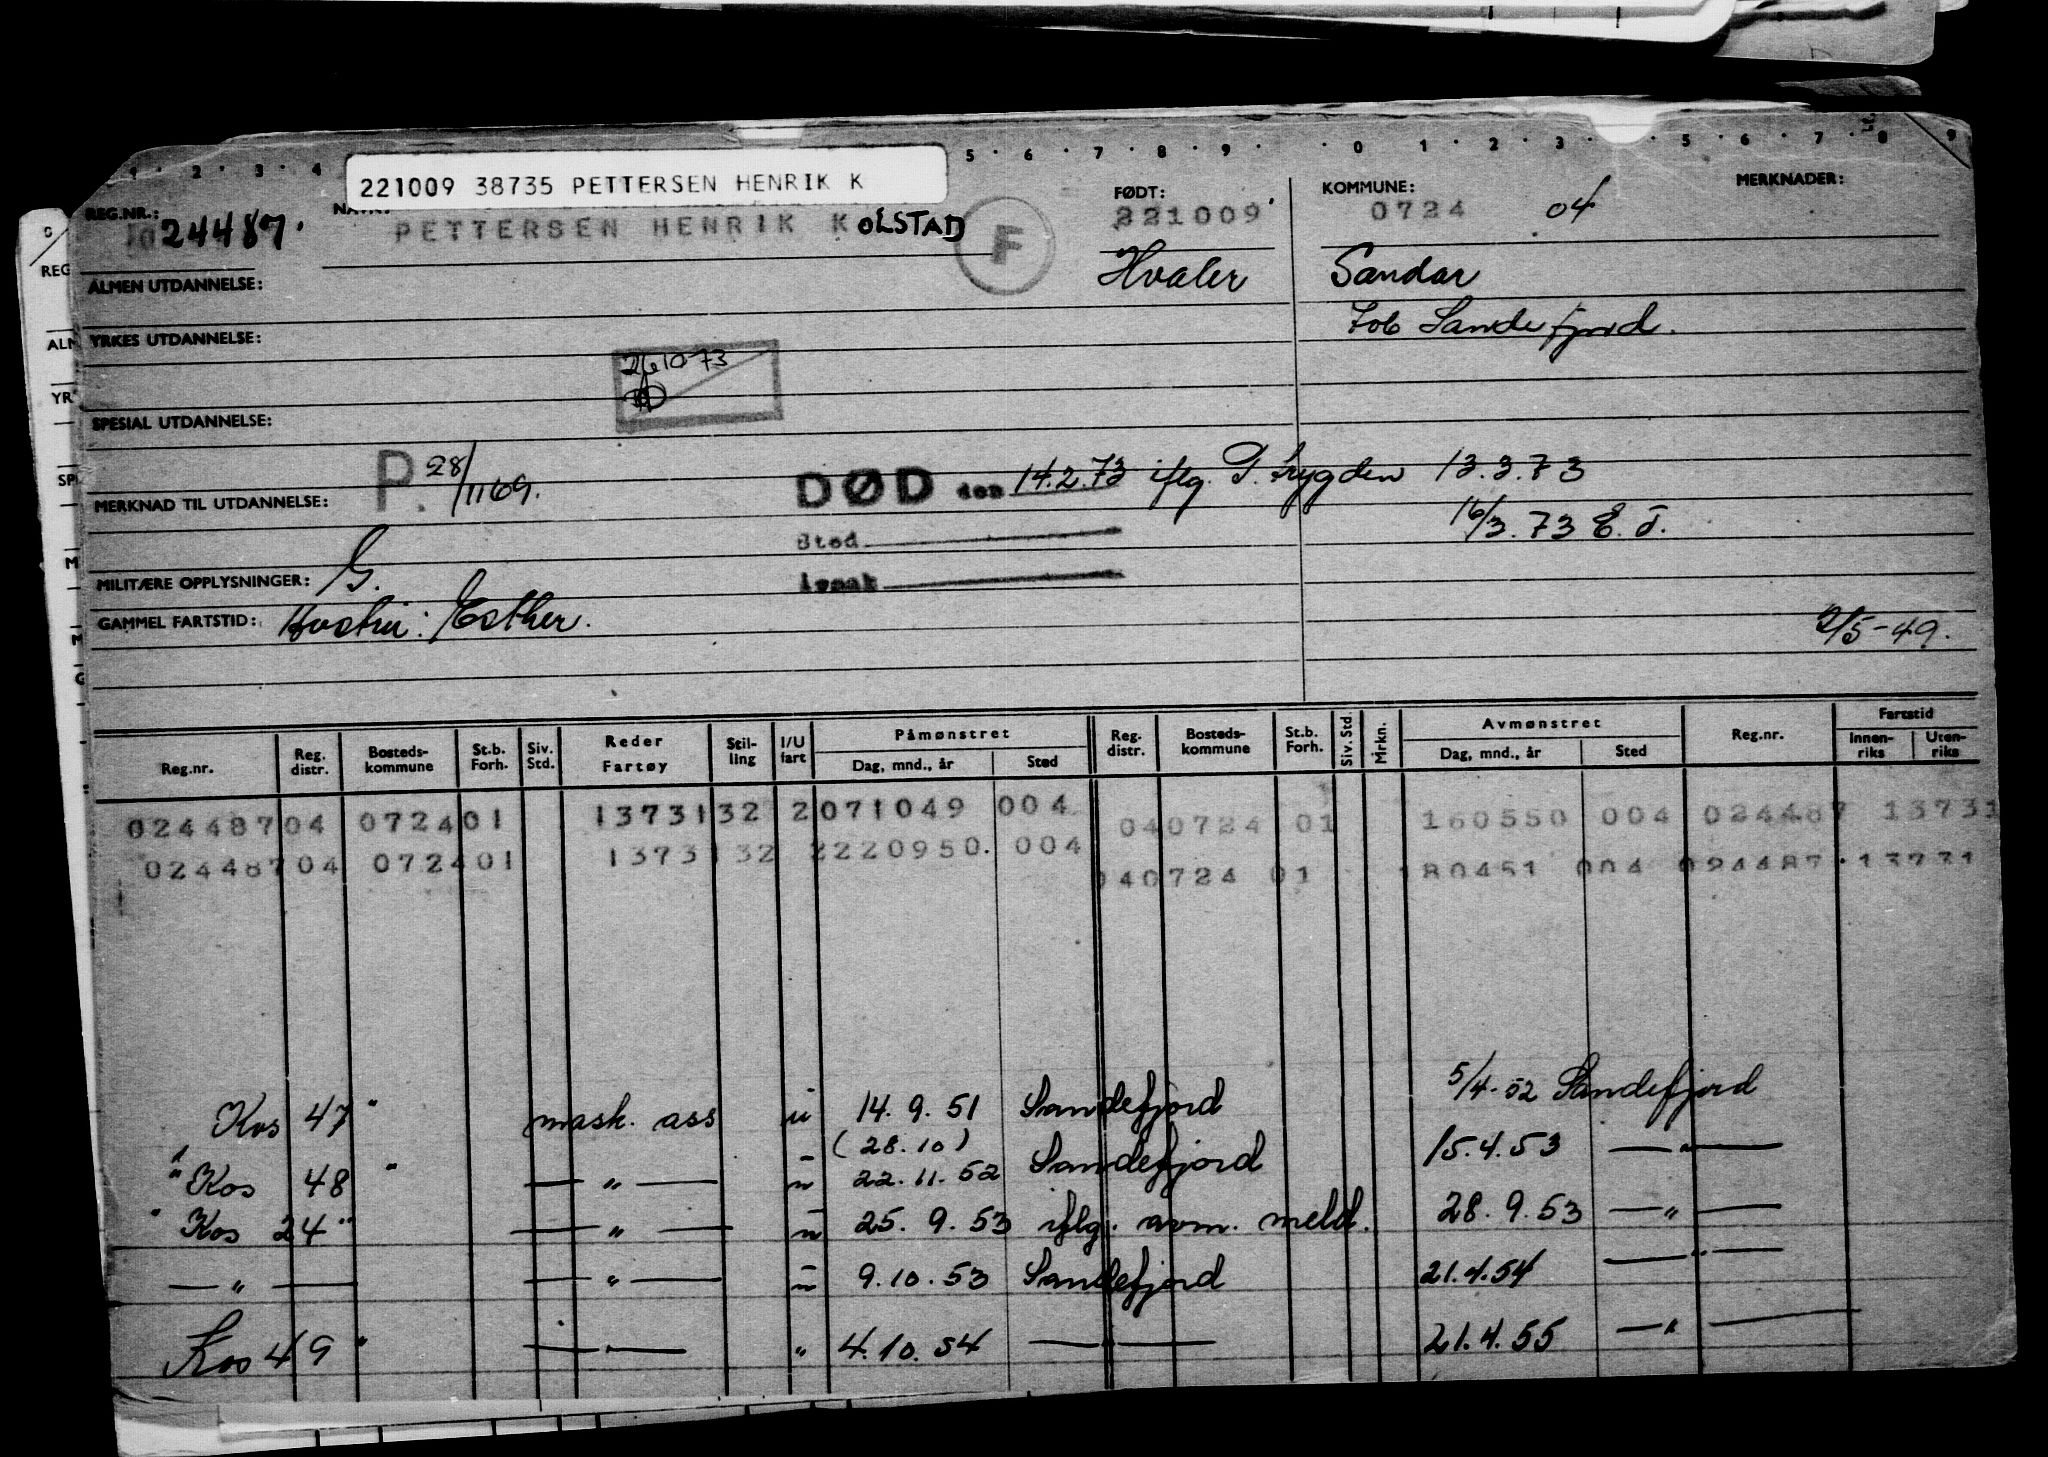 1 · 2 · 3 · 4 5 · 6 · 7 · 8 · 9 · · 0 · 1 · 2 · 3 · 5 · 6 · 7 · 8 9
221009 38735 PETTERSEN HENRIK K
REG.NR.: 24487. PETTERSEN HENRIK KOLSTAD F FØDT: 221009 KOMMUNE: 0724 04 MERKNADER:
ALMEN UTDANNELSE: Hvaler Sandar
YRKES UTDANNELSE: Sandefjord.
261073
SPESIAL UTDANNELSE:
MERKNAD TIL UTDANNELSE: P. 28/1169. DØD den 14.2.73 iflg. P. trygden 13.3.73
Sted 16/3.73 E.J.
MILITÆRE OPPLYSNINGER: G. årsak
GAMMEL FARTSTID: Hustru: Esther. 2/5-49.
Reg.nr. Reg. distr. Bosteds-kommune St.b. Forh. Siv. Std. Reder Fartøy Stil-ling I/U fart Påmønstret Dag, mnd., år Sted Reg. distr. Bosteds-kommune St.b. Forh. Siv. Std. Mrkn. Avmønstret Dag, mnd., år Sted Reg.nr. Fartstid Innen-riks Uten-riks
024487 04 0724 01 13731 32 2 071049 004 04 0724 01 160550 004 024487 13731
024487 04 0724 01 13731 32 2 220950. 004 040724 01 180451 004 024487 13731
Kos 47 " mask. ass u 14.9.51 Sandefjord 5/4-52 Sandefjord
(28.10)
" Kos 48 " — " — u 22.11.52 Sandefjord 15.4.53 — " —
" Kos 24 " — " — u 25.9.53 iflg. avm. meld. 28.9.53 — " —
— " — — " — u 9.10.53 Sandefjord 21.4.54 — " —
Kos 49 " — " — " 4.10.54 — " — 21.4.55 — " —